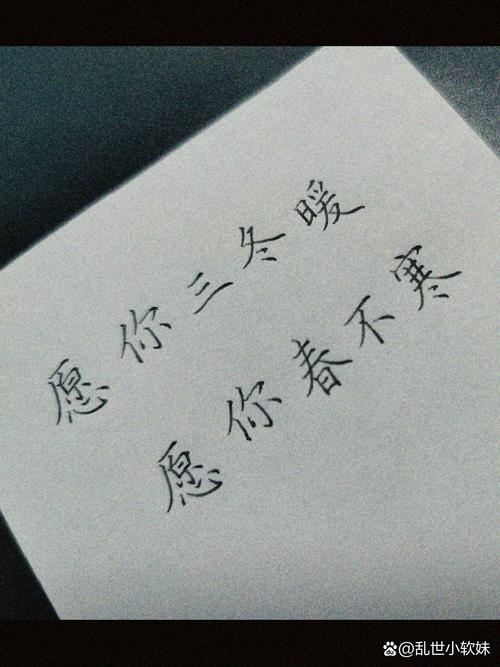 愿你三冬暖
愿你春不寒
@乱世小软妹